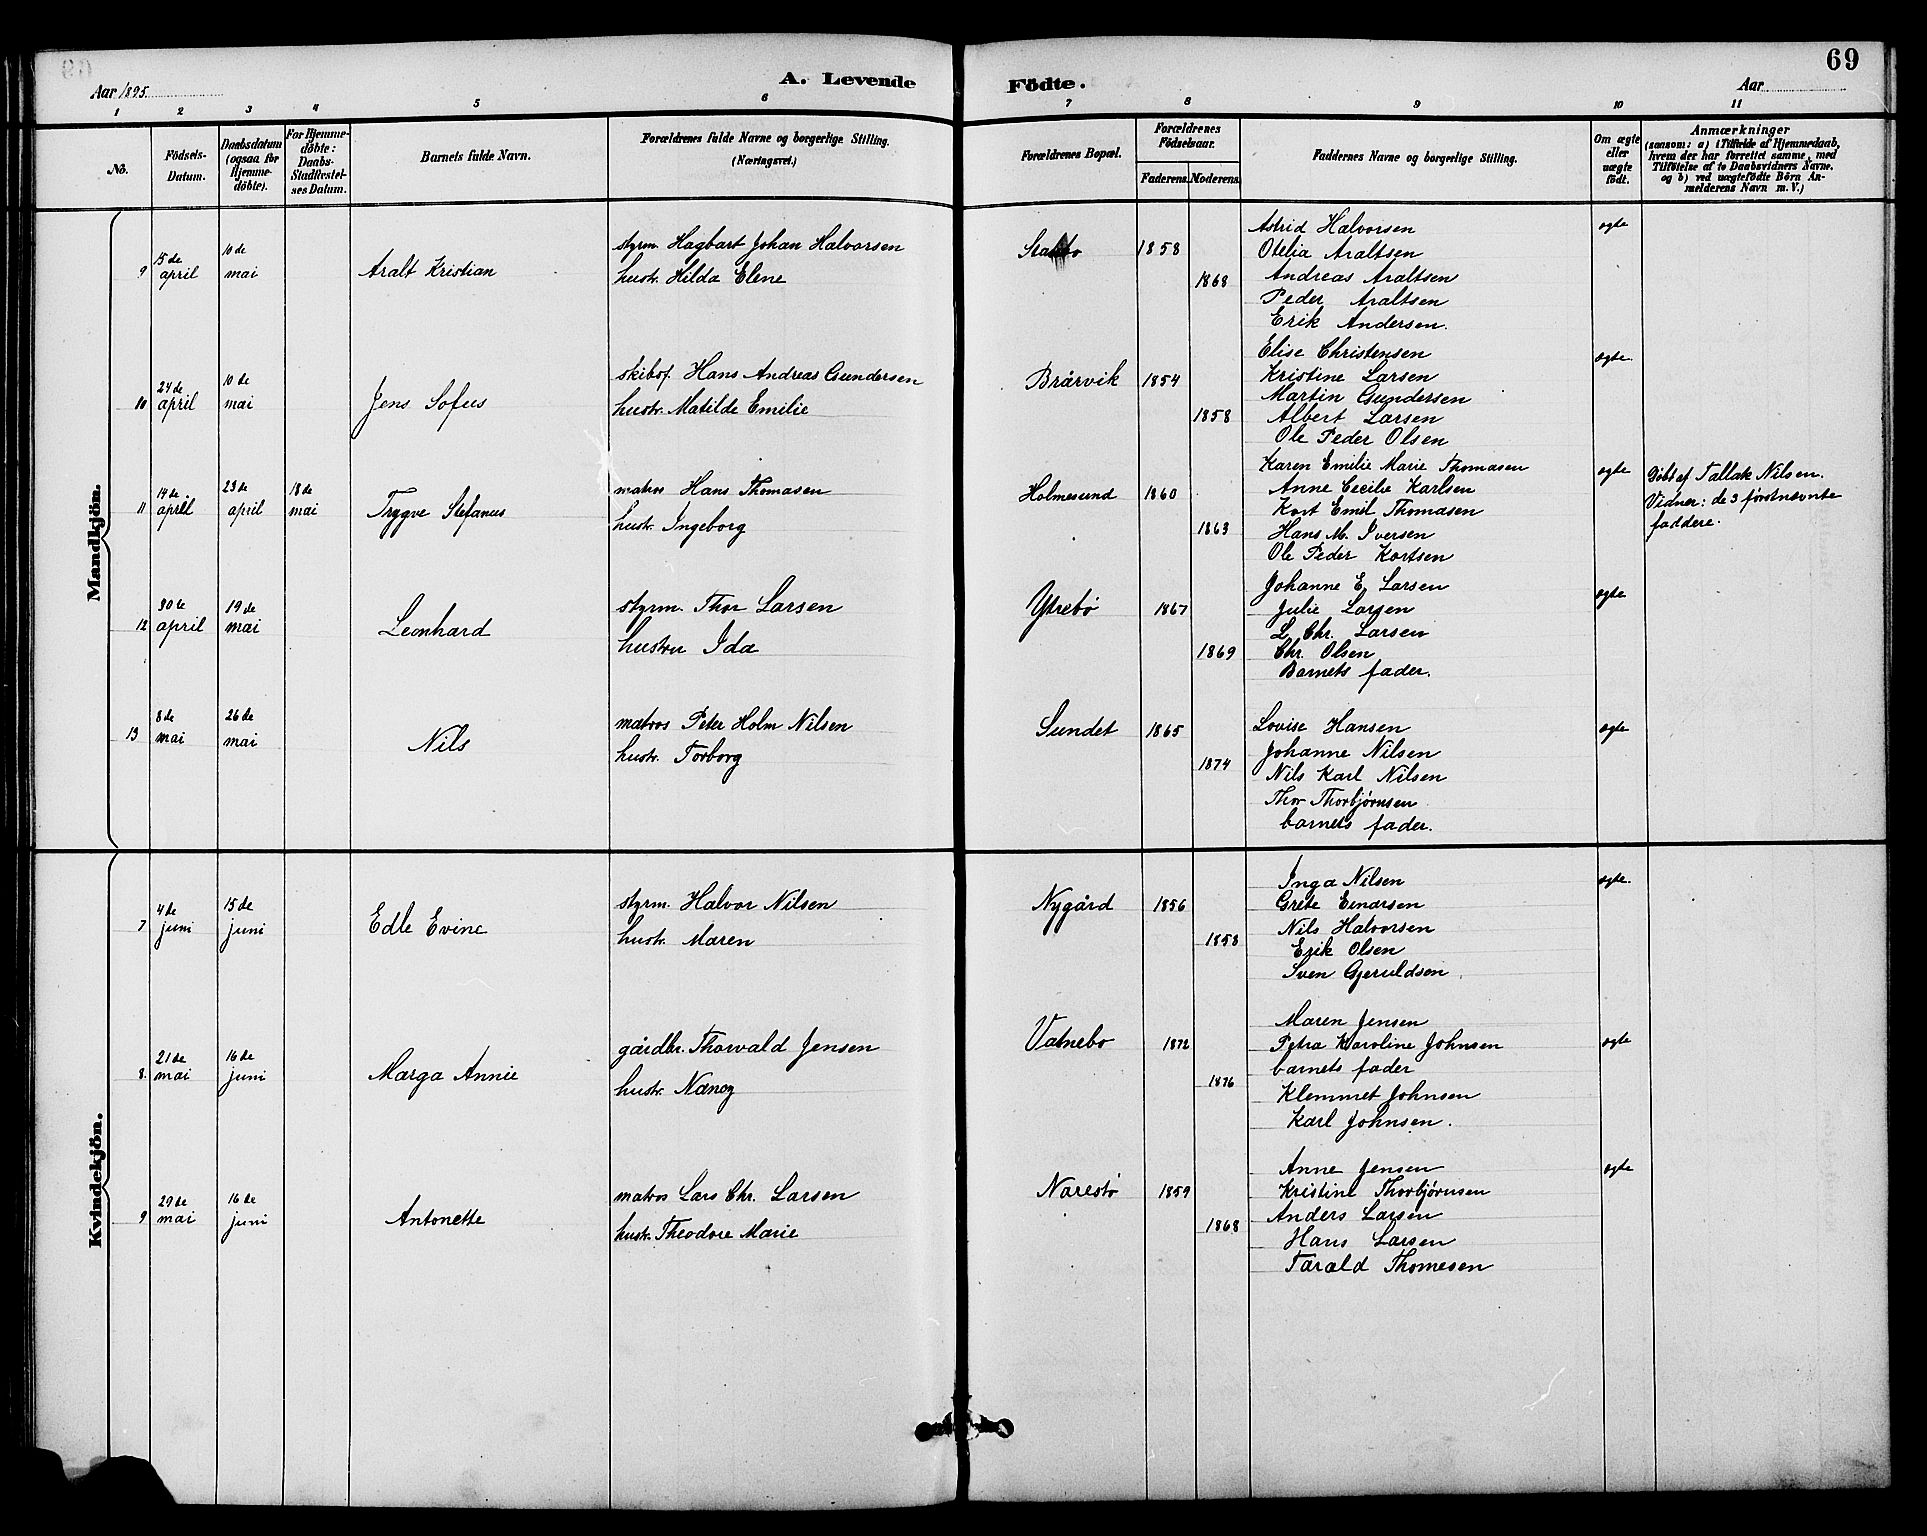 69
Aar 1895.
A. Levende
Födte.
Aar
1 2 3 4 5 6 7 8 9 10 11
No.
Födsels-
Datum.
Daabsdatum
(ogsaa for
Hjemme-
döbte).
For Hjemme-
döbte:
Daabs-
Stadfæstel-
ses Datum.
Barnets fulde Navn.
Forældrenes fulde Navne og borgerlige Stilling.
(Næringsvei.)
Forældrenes Bopæl.
Forældrenes
Födselsaar.
Faderens.
Moderens.
Faddernes Navne og borgerlige Stilling.
Om ægte
eller
uægte
födt.
Anmærkninger
(saasom: a) i Tilfælde af Hjemmedaab,
hvem der har forrettet samme, med
Tilföielse af to Daabsvidners Navne.
og b) ved uægtefödte Börn An-
melderens Navn m. V.)
Mandkjön.
9
15de
april
10de
mai
Aralt Kristian
styrm. Hagbart Johan Halvorsen
hustr. Hilda Elene
1858
1868
Astrid Halvorsen
Otelia Araltsen
Andreas Araltsen
Peder Araltsen
Erik Andersen.
egte
10
24de
april
10de
mai
Jens Sofus
skibsf. Hans Andreas Gundersen
hustr. Matilde Emilie
Brårvik
1854
1858
Elise Christensen
Kristine Larsen
Martin Gundersen
Albert Larsen
Ole Peder Olsen
egte.
11
14de
april
23de
april
18de
mai
Trygve Stefanus
matros Hans Thomasen
hustr. Ingeborg
Holmesund
1860
1863
Karen Emilie Marie Thomasen
Anne Cecilie Karlsen
Kort Emil Thomasen
Hans M. Iversen
Ole Peder Kortsen
egte
Döbt af Tallak Nilsen.
Vidner: de 3 förstnevnte
faddere.
12
30te
april
19de
mai
Leonhard
styrm. Thor Larsen
hustru Ida
Ytrebö
1867
1869
Johanne E. Larsen
Julie Larsen
L. Chr. Larsen
Chr. Olsen
Barnets fader.
egte
13
8de
mai
26de
mai
Nils
matros Peter Holm Nilsen
hustr. Torborg
Sundet
1865
1874
Lovise Hansen
Johanne Nilsen
Nils Karl Nilsen
Thor Thorbjörnsen
barnets fader.
egte
Kvindekjön.
7
4de
juni
15de
juni
Edle Evine
styrm. Halvor Nilsen
hustr. Maren
Nygård
1856
1858
Inga Nilsen
Grete Einarsen
Nils Halvorsen
Erik Olsen
Sven Gjeruldsen.
egte.
8.
21de
mai
16de
juni
Marga Annie
gårdbr. Thorvald Jensen
hustr. Nancy
Vatnebo
1872
1876
Maren Jensen
Petra Karoline Johnsen
barnets fader
Klemmet Johnsen
Karl Johnsen.
egte
9
29de
mai
16de
juni
Antonette
matros Lars Chr. Larsen
hustr. Theodore Marie
Narestö
1859
1868
Anne Jensen
Kristine Thorbjörnsen
Anders Larsen
Hans Larsen
Tarald Thomesen
egte